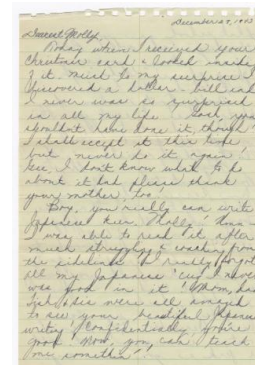 December 27, 1943
Dearest Molly,
Today when I received your
Christmas card & looked inside
of it much to my surprise I
discovered a dollar-bill and
I never was so surprised
in all my life Gosh, you
shouldn't have done it, though!
I shall accept it this time
but never do it again!
Gee, I don't know what to do
about it but please thank
your mother, too!
Boy, you really can write
Japanese keen, Molly!
was able to read it after
much struggling & coaching from
the sidelines. I really forgot
all my Japanese 'cuz I never
was good in it! Mom, dad,
& sis were all amazed
to see your beautiful Japanese
writing! Confidentially, you're
good! Now, you can teach
me somethin'